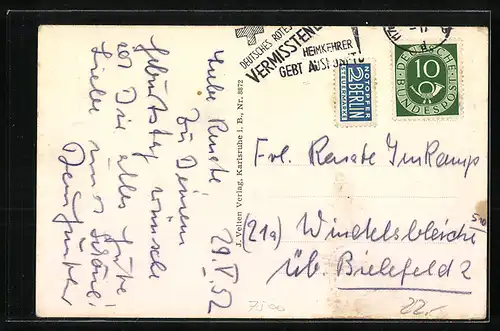 DEUTSCHES ROTES
VERMISSTEN
HEIMKEHRER
GEBT AUSKUNFT
NOTOPFER
2 BERLIN
STEUERMARKE
DEUTSCHE
10
BUNDESPOST
29. V. 52
Liebe Renate
Zu Deinem
Geburtstag wünsche
ich Dir alles Gute
Liebe und Schöne!
Dein Günther
J. Velten Verlag, Karlsruhe i. B., Nr. 8872
Frl. Renate Imkamp
(21a) Windelsbleiche
üb. Bielefeld 2
22.-